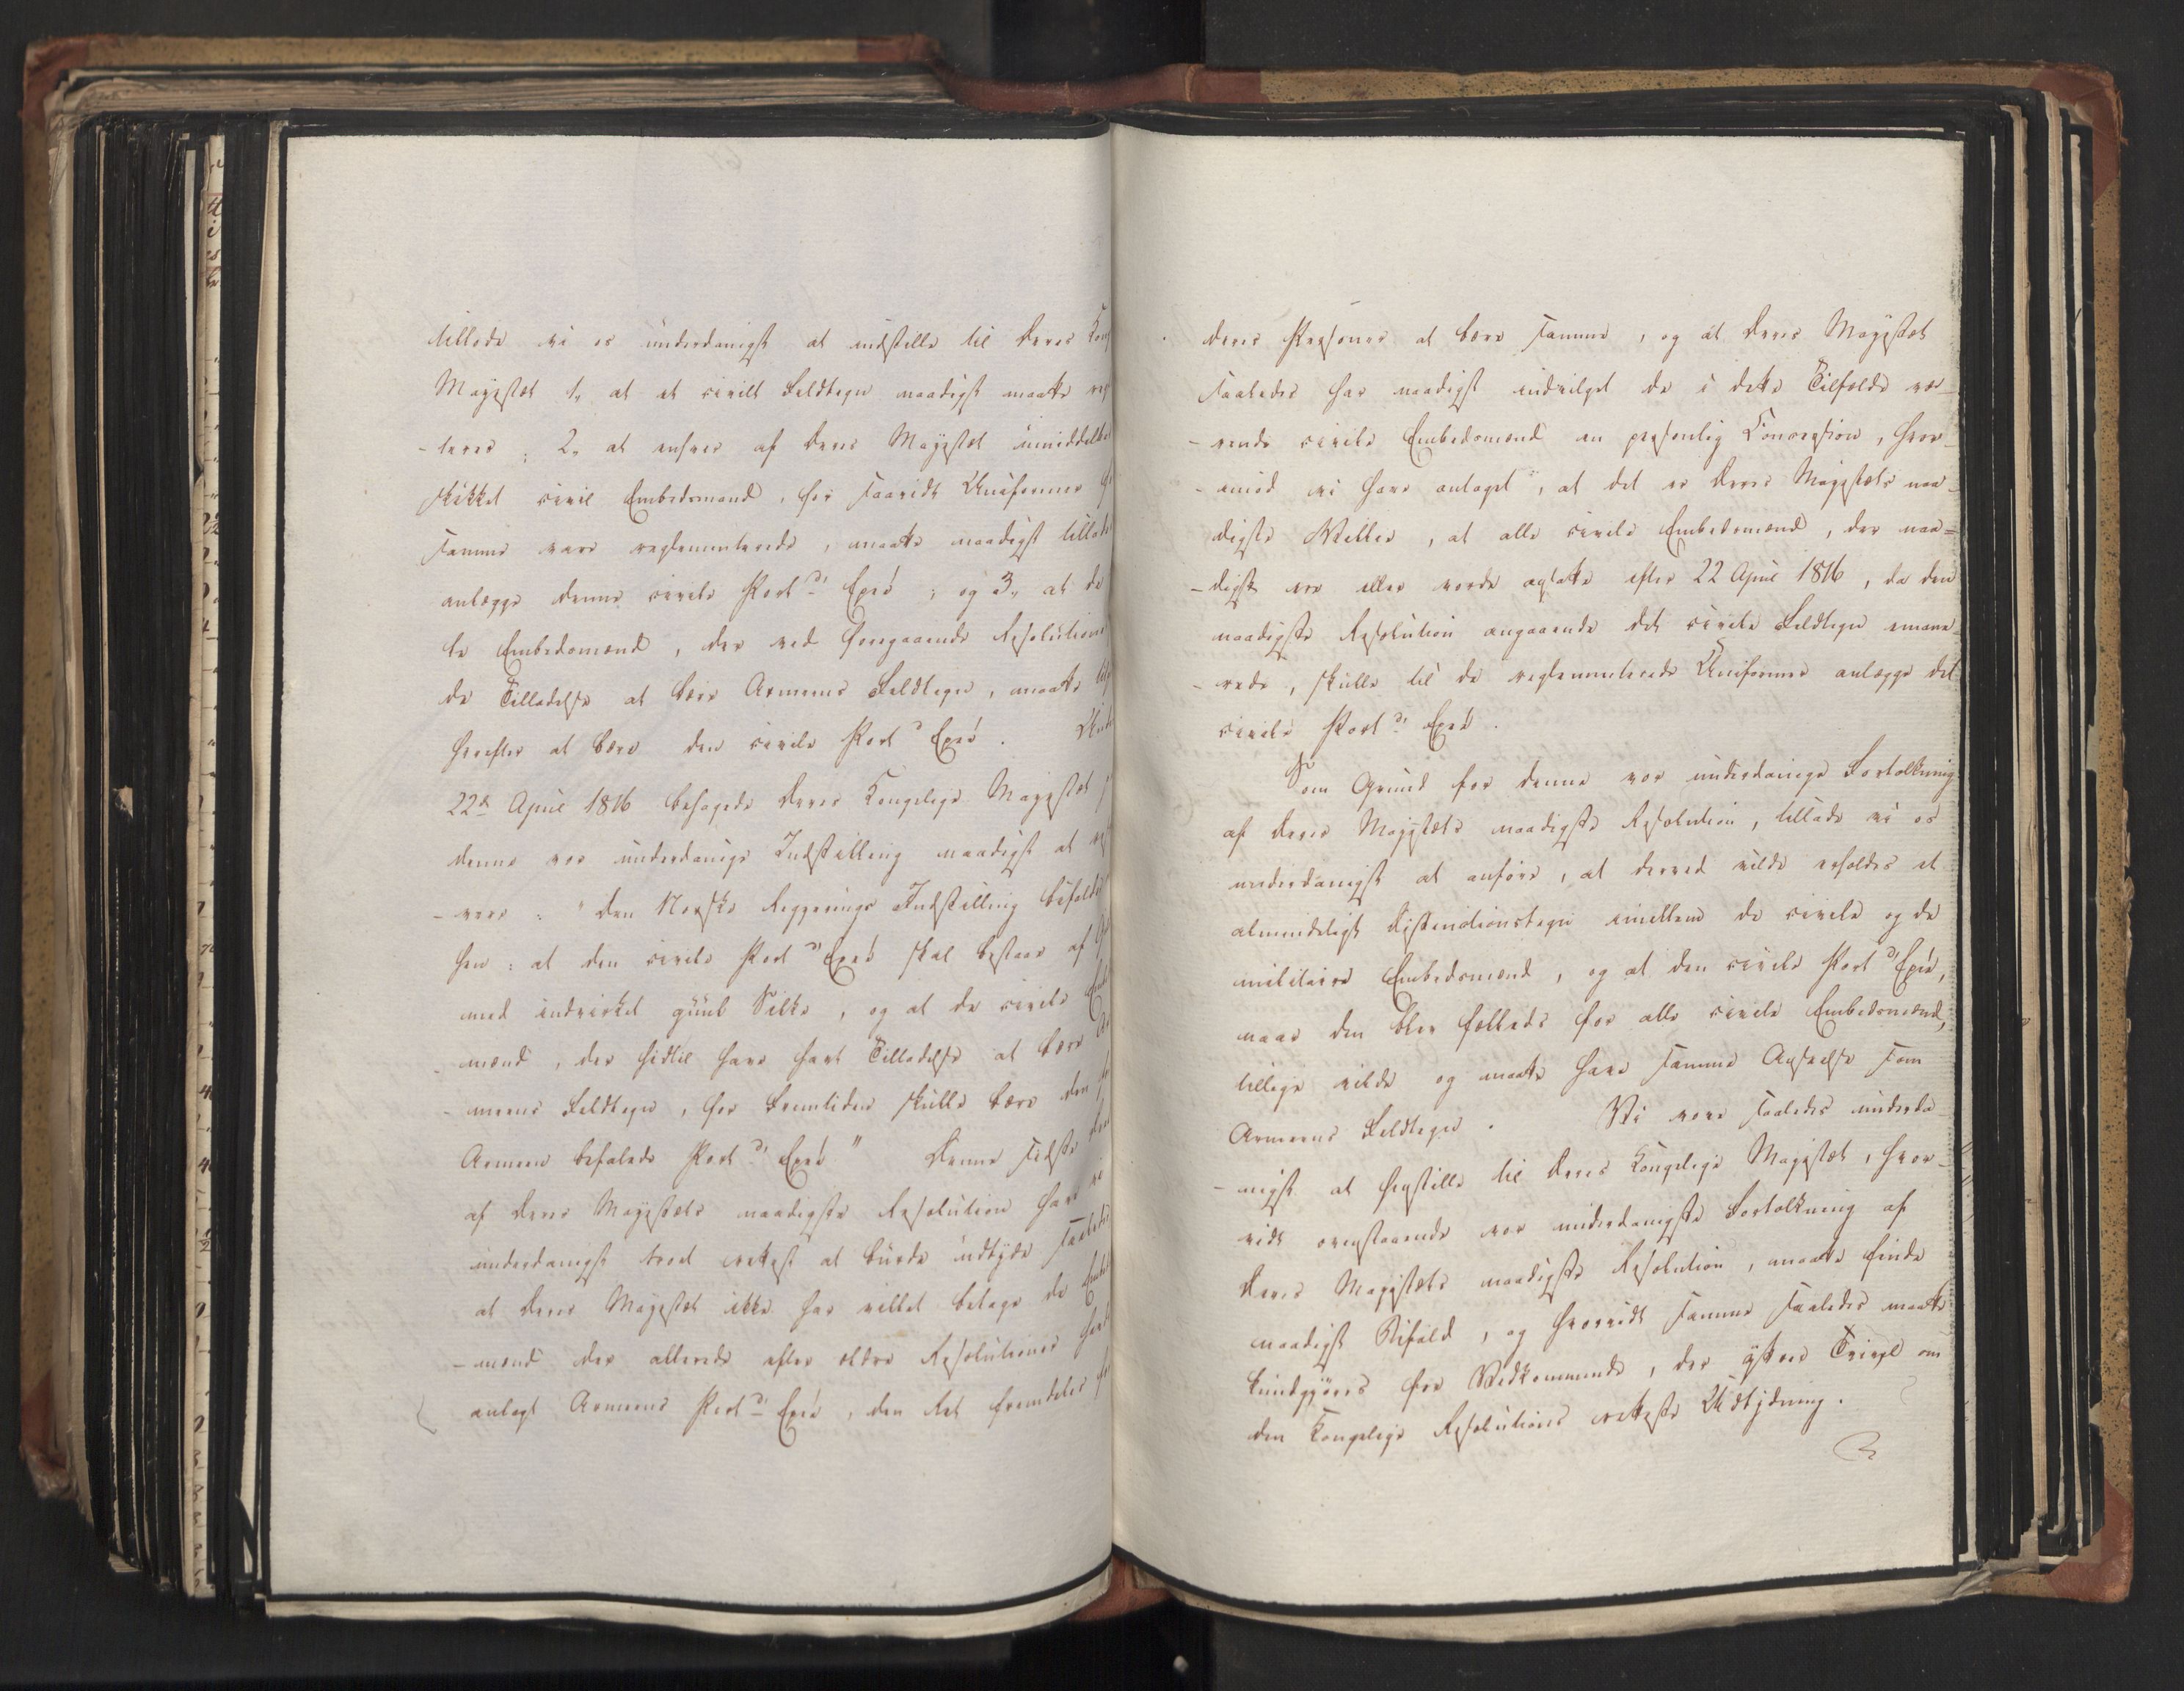 tillode vi os underdanigst at indstille til Deres
Majestæt 1, at et civilt Feldtegn naadigst maatte
-teres; 2, at enhver af Deres Majestæt
skikket civil Embedsmand, for saavidt Uniformer
samme vare reglementerede, maatte naadigst
anlægge denne civile Port d' Epeé; og 3, at de
le Embedsmænd, der ved foregaaende
de Tilladelse at bære Armeens Feldtegn, maatte
herefter at bære den civile Port d' Epeé.
22de April 1816 behagede Deres Kongelige Majestæt
denne vor underdanige Indstilling naadigst at
-vere: "Den Norske Regjerings Indstilling bifaldes
hen: at den civile Port d' Epeé skal bestaae af
med indvirket guul Silke, og at de civile
-mænd, der hidtil have havt Tilladelse at bære
-meens Feldtegn, for Fremtiden skulle bære den
Armeen befalede Port d' Epeé" Denne sidste
af Deres Majestæts naadigste Resolution have vi
underdanigst troet rettest at burde udtyde saaledes
at Deres Majestæt ikke har villet betage de
-mænd der allerede efter ældre Resolutioner
anlagt Armeens Port d' Epeé, den Ret fremdeles
deres Personer at bære samme, og at Deres Majestæt
saaledes har naadigst indvilget de i dette Tilfælde væ-
-rende civile Embedsmænd en personlig Concession, hvor-
-imod vi have antaget, at det er Deres Majestæts naa-
digste Villie, at alle civile Embedsmænd, der naa-
-digst ere eller vorde ansatte efter 22 April 1816, da den
naadigste Resolution angaaende det civile Feldtegn emane-
-rede, skulle til de reglementerede Uniformer anlægge det
civile Port d' Epeé.
Som Grund for denne vor underdanige Fortolkning
af Deres Majestæts naadigste Resolution, tillade vi os
underdanigst at anføre, at derved vilde erholdes et
almindeligt Distinctionstegn imellem de civile og de
militaire Embedsmænd, og at den civile Port d' Epeé,
naar den blev fælleds for alle civile Embedsmænd,
tillige vilde og maatte have samme Agtelse som
Armeens Feldtegn. Vi vove saaledes underda-
-nigst at henstille til Deres Kongelige Majestæt, hvor-
vidt ovenstaaende vor underdanigste Fortolkning af
Deres Majestæts naadigste Resolution, maatte finde
naadigst Bifald, og hvorvidt samme saaledes maatte
kundgjøres for Vedkommende, der yttre Tvivl om
den Kongelige Resolutions retteste Udtydning.